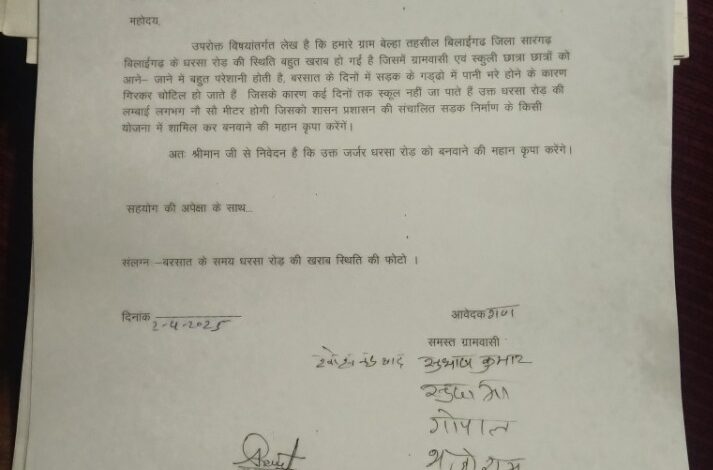 महोदय,
उपरोक्त विषयांतर्गत लेख है कि हमारे ग्राम बेल्हा तहसील बिलाईगढ जिला सारंगढ़
बिलाईगढ़ के धरसा रोड़ की स्थिति बहुत खराब हो गई है जिसमें ग्रामवासी एवं स्कुली छात्रा छात्रों को
आने– जाने में बहुत परेशानी होती है, बरसात के दिनों में सड़क के गड्ढो में पानी भरे होने के कारण
गिरकर चोटिल हो जाते हैं जिसके कारण कई दिनों तक स्कूल नहीं जा पाते हैं उक्त धरसा रोड़ की
लम्बाई लगभग नौ सौ मीटर होगी जिसको शासन प्रशासन की संचालित सड़क निर्माण के किसी
योजना में शामिल कर बनवाने की महान कृपा करेंगे।
अतः श्रीमान जी से निवेदन है कि उक्त जर्जर धरसा रोड़ को बनवाने की महान कृपा करेंगे।
सहयोग की अपेक्षा के साथ...
संलग्न –बरसात के समय धरसा रोड़ की खराब स्थिति की फोटो ।
दिनांक 2-4-2025 आवेदक गण
समस्त ग्रामवासी
सुभाष कुमार
सुदामा
गोपाल